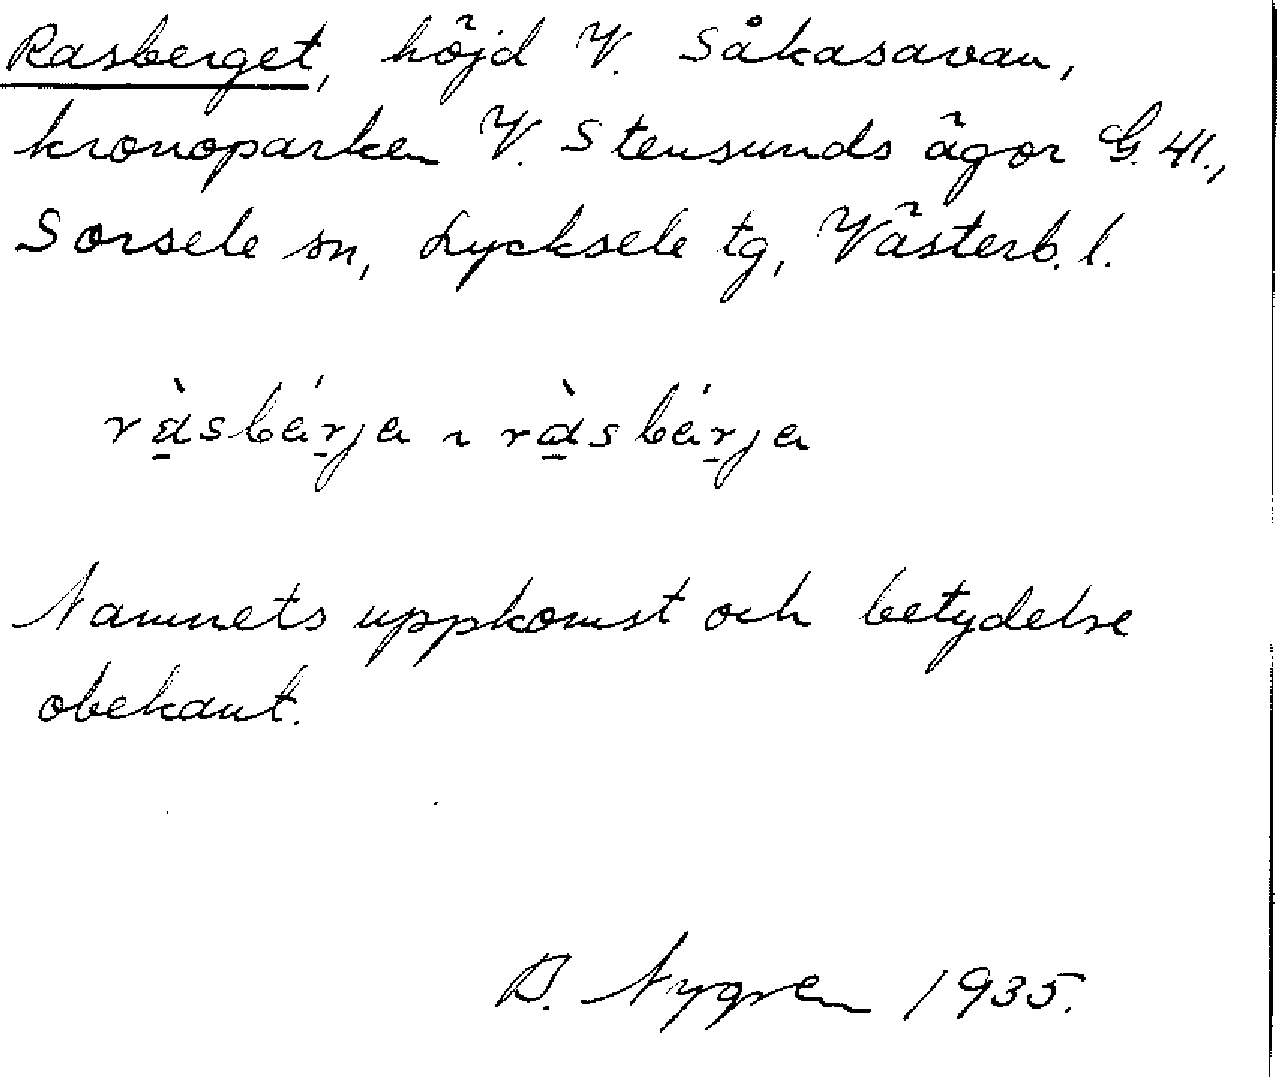 Rasberget, höjd V. Såkasavan,
kronoparken V. Stensunds ägor G. 41.,
Sorsele sn, Lycksele tg, Västerb. l.
ràsbérja ~ ràsbérja
Namnets uppkomst och betydelse
obekant.
B. Nygren 1935.